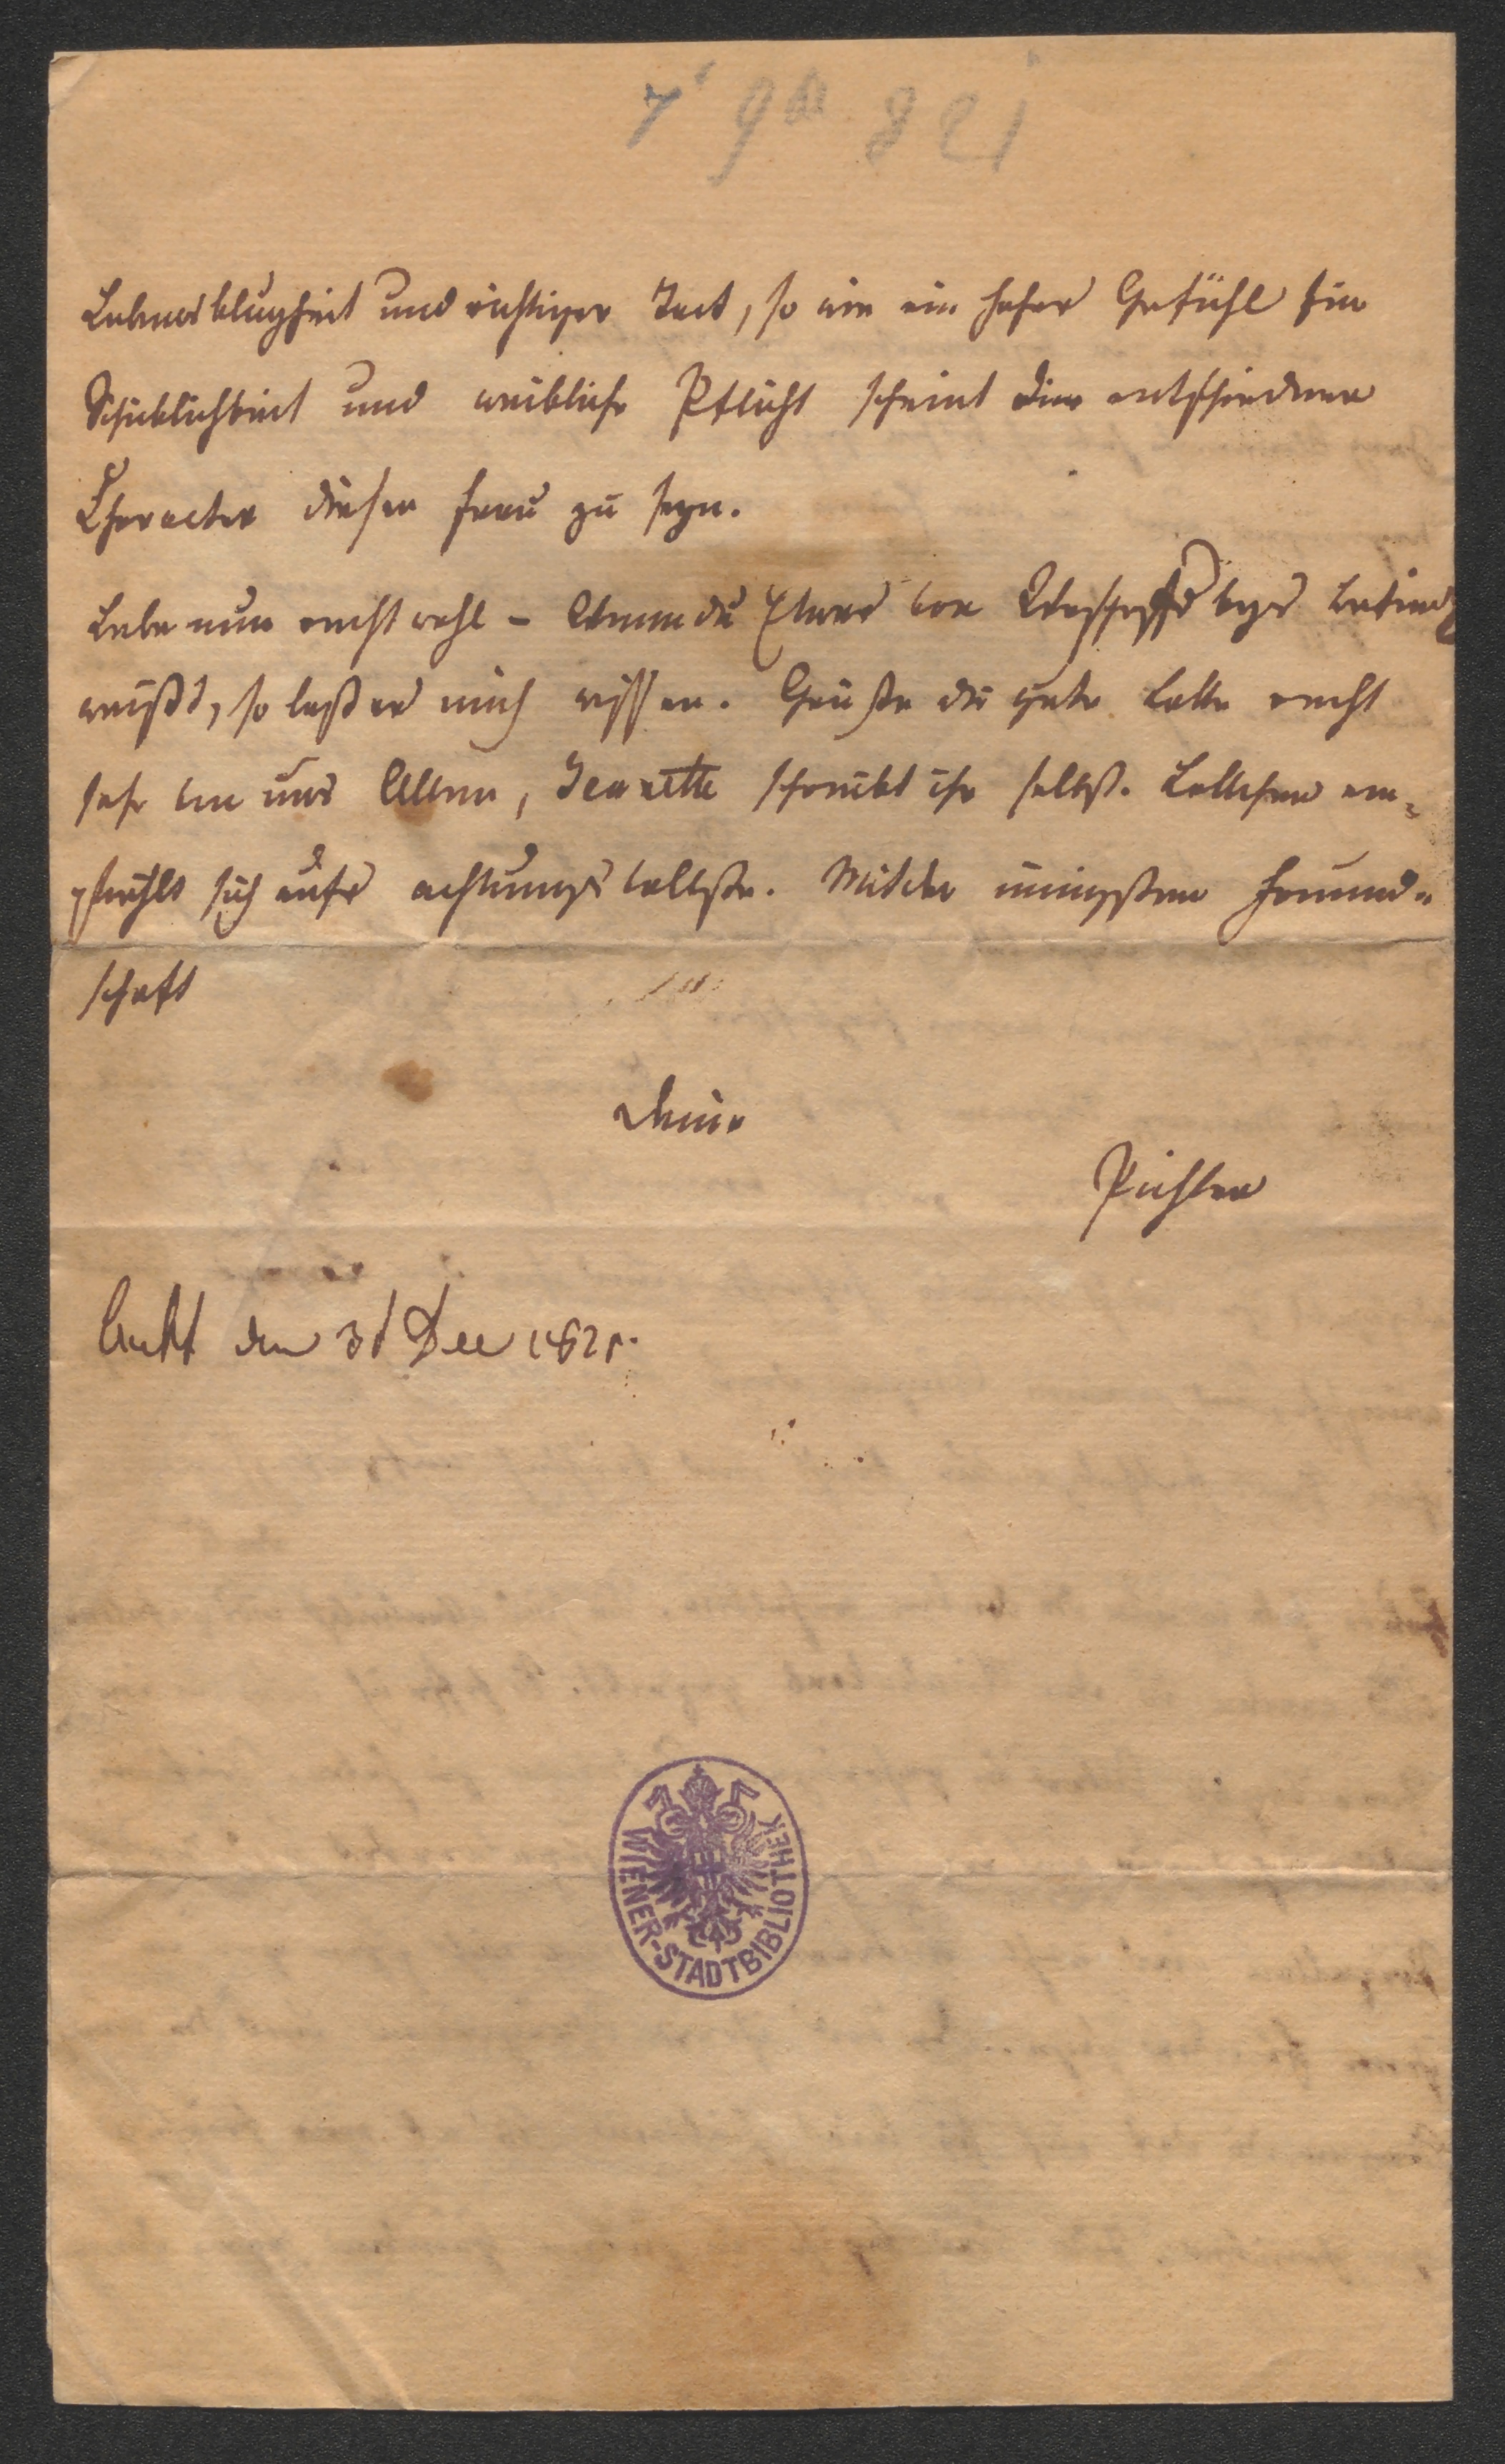 Lebensklugheit und richtiger Tact, so wie ein hoher Gefühl für
Schicklichkeit und weibliche Pflicht scheint der entschiedene
Character dieser Frau zu seyn.
Lebe nun recht wohl – Wenn du Etwas von
weißt, so laß es mich wissen. Grüße die gute Lotte recht
sehr von uns Allen, Jeanette schreibt ihr selbst. Lottchen em¬
pfiehlt sich aufs achtungsvollste. Mit der innigsten Freund¬
schaft
Deine
Pichler
den 31 Dec 1821.
WIENER-STADTBIBLIOTHEK